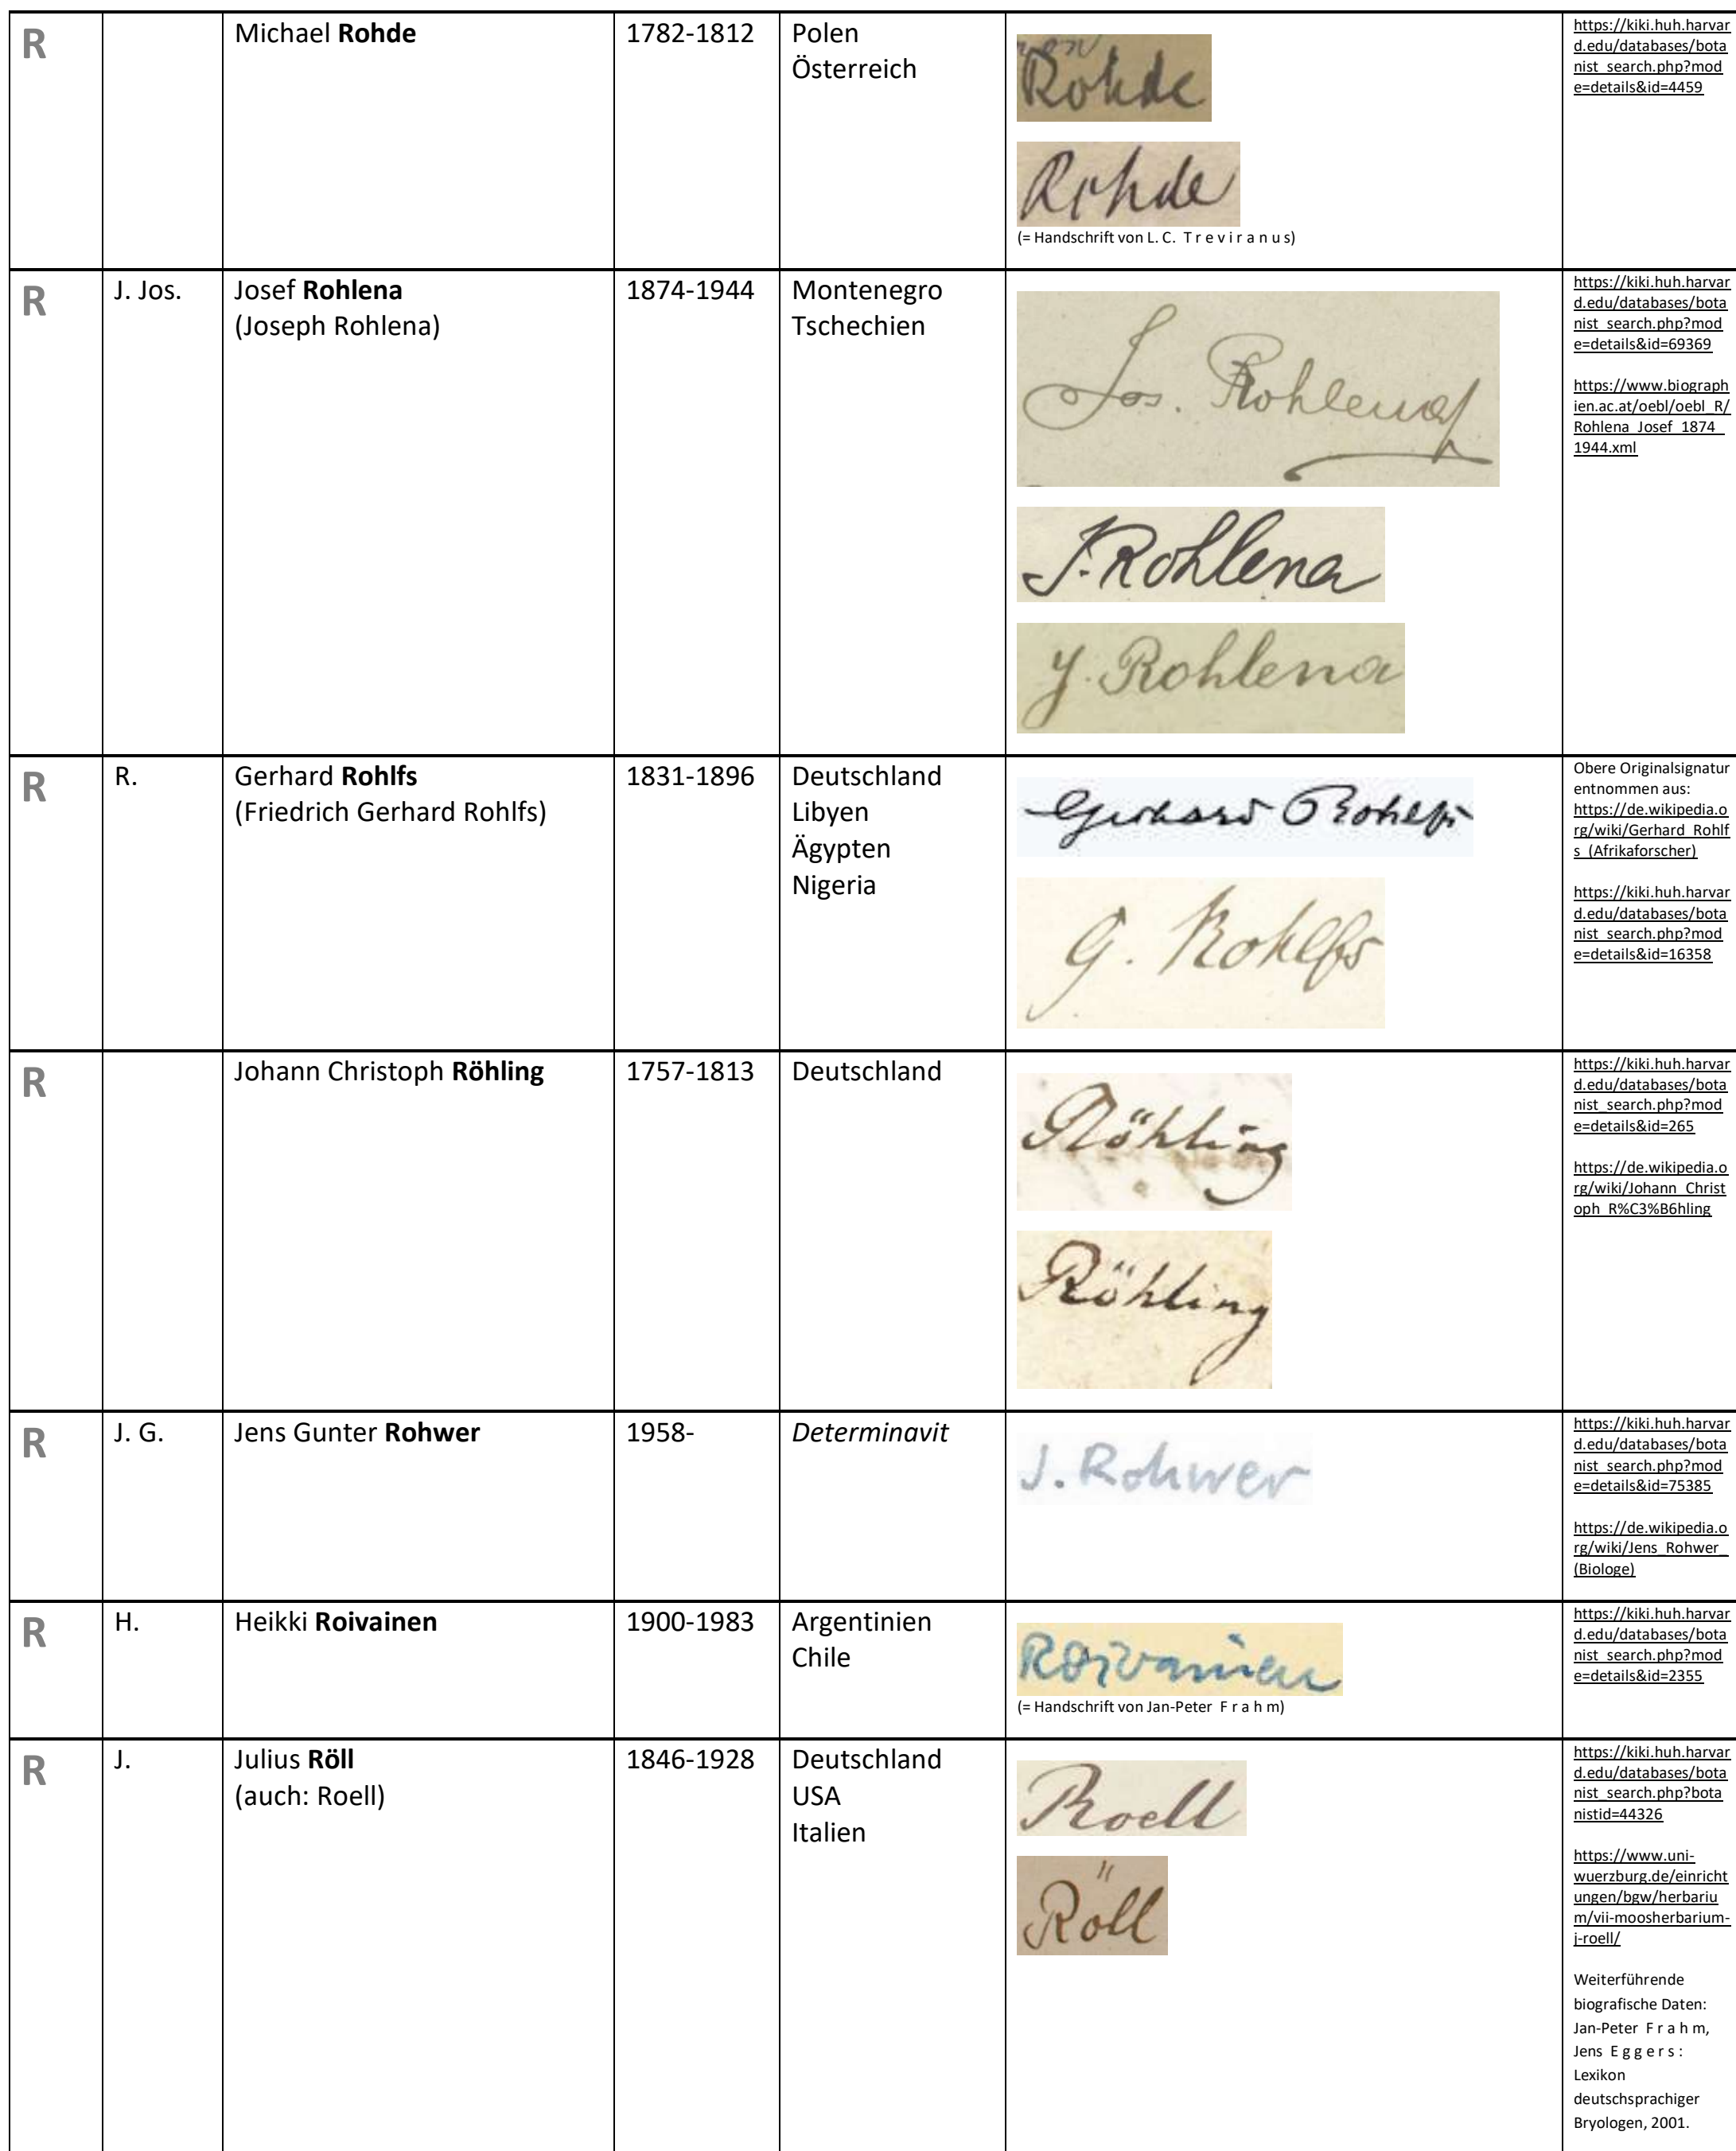 R
Michael Rohde
1782-1812
Polen
Österreich
Rohde
Rohde
(= Handschrift von L. C. T r e v i r a n u s)
https://kiki.huh.harvar
d.edu/databases/bota
nist_search.php?mod
e=details&id=4459
R
J. Jos.
Josef Rohlena
(Joseph Rohlena)
1874-1944
Montenegro
Tschechien
Jos. Rohlena
J. Rohlena
J. Rohlena
https://kiki.huh.harvar
d.edu/databases/bota
nist_search.php?mod
e=details&id=69369
https://www.biograph
ien.ac.at/oebl/oebl_R/
Rohlena_Josef_1874_
1944.xml
R
R.
Gerhard Rohlfs
(Friedrich Gerhard Rohlfs)
1831-1896
Deutschland
Libyen
Ägypten
Nigeria
Gerhard Rohlfs
G. Rohlfs
Obere Originalsignatur
entnommen aus:
https://de.wikipedia.o
rg/wiki/Gerhard_Rohlf
s_(Afrikaforscher)
https://kiki.huh.harvar
d.edu/databases/bota
nist_search.php?mod
e=details&id=16358
R
Johann Christoph Röhling
1757-1813
Deutschland
Röhling
Röhling
https://kiki.huh.harvar
d.edu/databases/bota
nist_search.php?mod
e=details&id=265
https://de.wikipedia.o
rg/wiki/Johann_Christ
oph_R%C3%B6hling
R
J. G.
Jens Gunter Rohwer
1958-
Determinavit
J. Rohwer
https://kiki.huh.harvar
d.edu/databases/bota
nist_search.php?mod
e=details&id=75385
https://de.wikipedia.o
rg/wiki/Jens_Rohwer_
(Biologe)
R
H.
Heikki Roivainen
1900-1983
Argentinien
Chile
Roivainen
(= Handschrift von Jan-Peter F r a h m)
https://kiki.huh.harvar
d.edu/databases/bota
nist_search.php?mod
e=details&id=2355
R
J.
Julius Röll
(auch: Roell)
1846-1928
Deutschland
USA
Italien
Roell
Röll
https://kiki.huh.harvar
d.edu/databases/bota
nist_search.php?bota
nistid=44326
https://www.uni-
wuerzburg.de/einricht
ungen/bgw/herbariu
m/vii-moosherbarium-
j-roell/
Weiterführende
biografische Daten:
Jan-Peter F r a h m,
Jens E g g e r s :
Lexikon
deutschsprachiger
Bryologen, 2001.